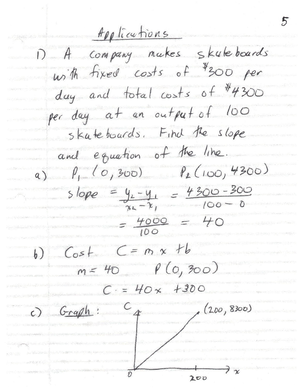 5
Applications
1) A company makes skateboards
with fixed costs of $300 per
day and total costs of $4300
per day at an output of 100
skateboards. Find the slope
and equation of the line.
a) P₁ (0, 300) P₂ (100, 4300)
slope = y₂ - y₁ / x₂ - x₁ = 4300 - 300 / 100 - 0
= 4000 / 100 = 40
b) Cost C = mx + b
m = 40 P(0, 300)
C = 40x + 300
c) Graph: C
(200, 8300)
0 200 x